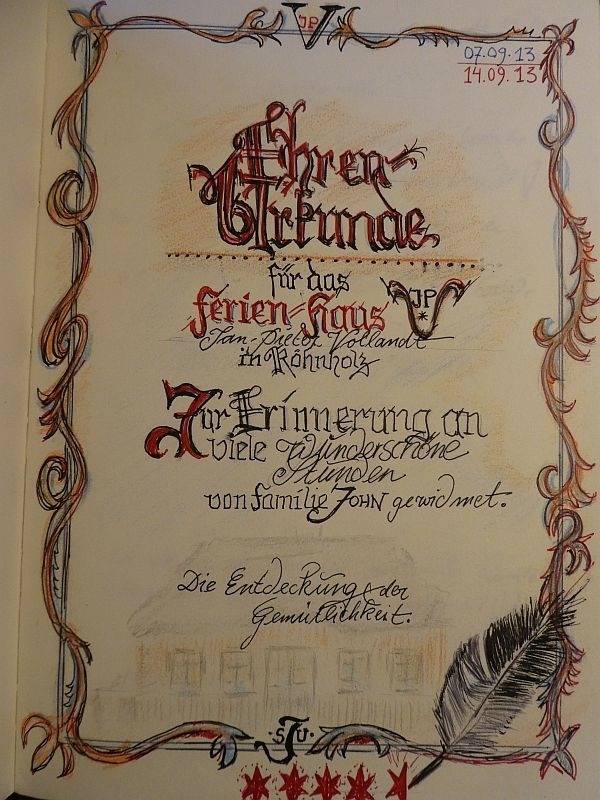 JP
V
07.09.13
14.09.13
Ehren-
Urkunde
für das
Ferien-Haus
JPV
Jan-Pieter Vollandt
in Röhnholz
Zur Erinnerung an
viele wunderschöne
Stunden
von Familie JOHN gewidmet.
Die Entdeckung der
Gemütlichkeit.
S J U